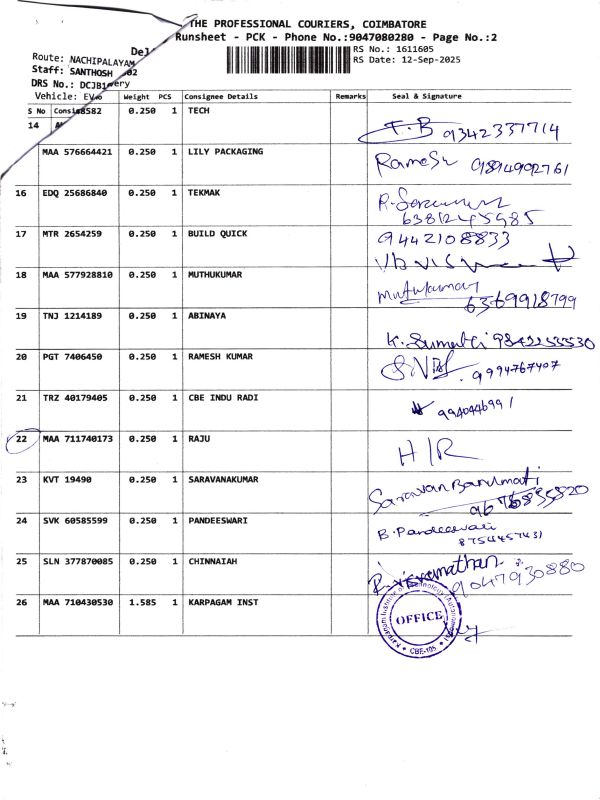 THE PROFESSIONAL COURIERS, COIMBATORE
Runsheet - PCK - Phone No.:9047080280 - Page No.:2
Del
Route: NACHIPALAYAM
RS No.: 1611605
Staff: SANTHOSH 02
RS Date: 12-Sep-2025
DRS No.: DCJB1 ery
Vehicle: EV
Weight PCS Consignee Details Remarks Seal & Signature
S No Consi 8582 0.250 1 TECH
14 T.B 9342337714
MAA 576664421 0.250 1 LILY PACKAGING
Ramesh 9894902761
16 EDQ 25686840 0.250 1 TEKMAK
17 MTR 2654259 0.250 1 BUILD QUICK
9442108833
18 MAA 577928810 0.250 1 MUTHUKUMAR
6369918799
19 TNJ 1214189 0.250 1 ABINAYA
K. Sumathi
20 PGT 7406450 0.250 1 RAMESH KUMAR
9994767407
21 TRZ 40179405 0.250 1 CBE INDU RADI
22 MAA 711740173 0.250 1 RAJU
H/R
23 KVT 19490 0.250 1 SARAVANAKUMAR
24 SVK 60585599 0.250 1 PANDEESWARI
B. Pandeeswari
8754457431
25 SLN 377870085 0.250 1 CHINNAIAH
9047930880
26 MAA 710430530 1.585 1 KARPAGAM INST
Karpagam Institute of Technology (Autonomous)
OFFICE
CBE-105